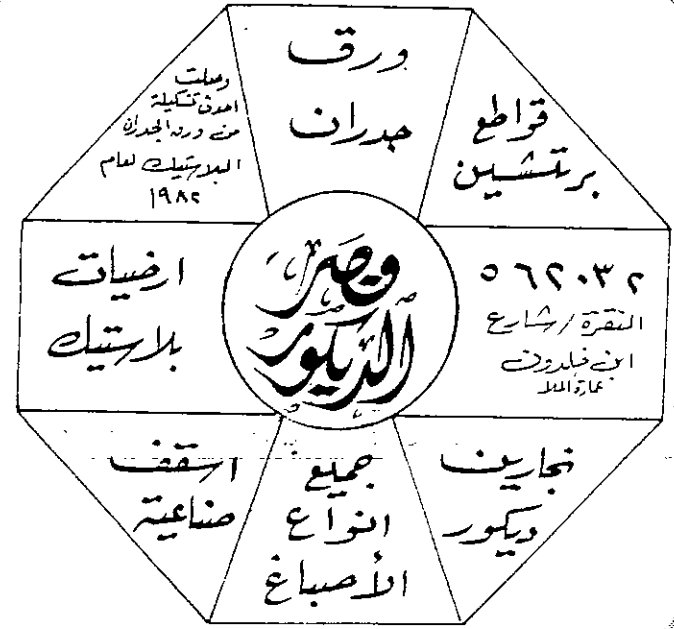 ورق
جدران
قواطع
برتشين
٥٦٢٠٣٢
النقرة / شارع
ابن خلدون
عمارة الملا
نجارين
ديكور
جميع
انواع
الأصباغ
اسقف
صناعية
ارضيات
بلاستيك
وصلت
احدث تشكيلة
من ورق الجدران
البلاستيك لعام
١٩٨٢
قصر
الديكور